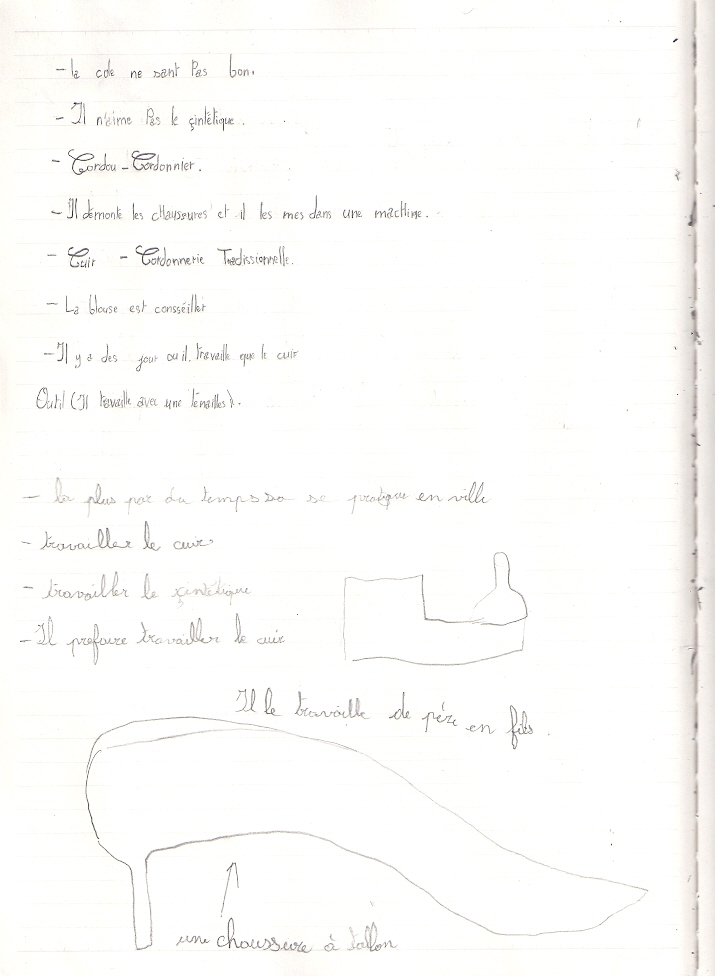 - la cole ne sant Pas bon.
- Il n'aime Pas le çintétique.
- Cordou - Cordonnier.
- Il démonte les chaussures et il les mes dans une machine.
- Cuir - Cordonnerie Tradissionnelle.
- La blouse est consséiller
- Il y a des jour ou il travaille que le cuir
Outil (Il travaille avec une ténailles).
- la plus par du temps sa se pratique en ville
- travailler le cuir
- travailler le çintétique
- Il prefaire travailler le cuir
Il le travaille de pére en fils.
une chaussure à tallon